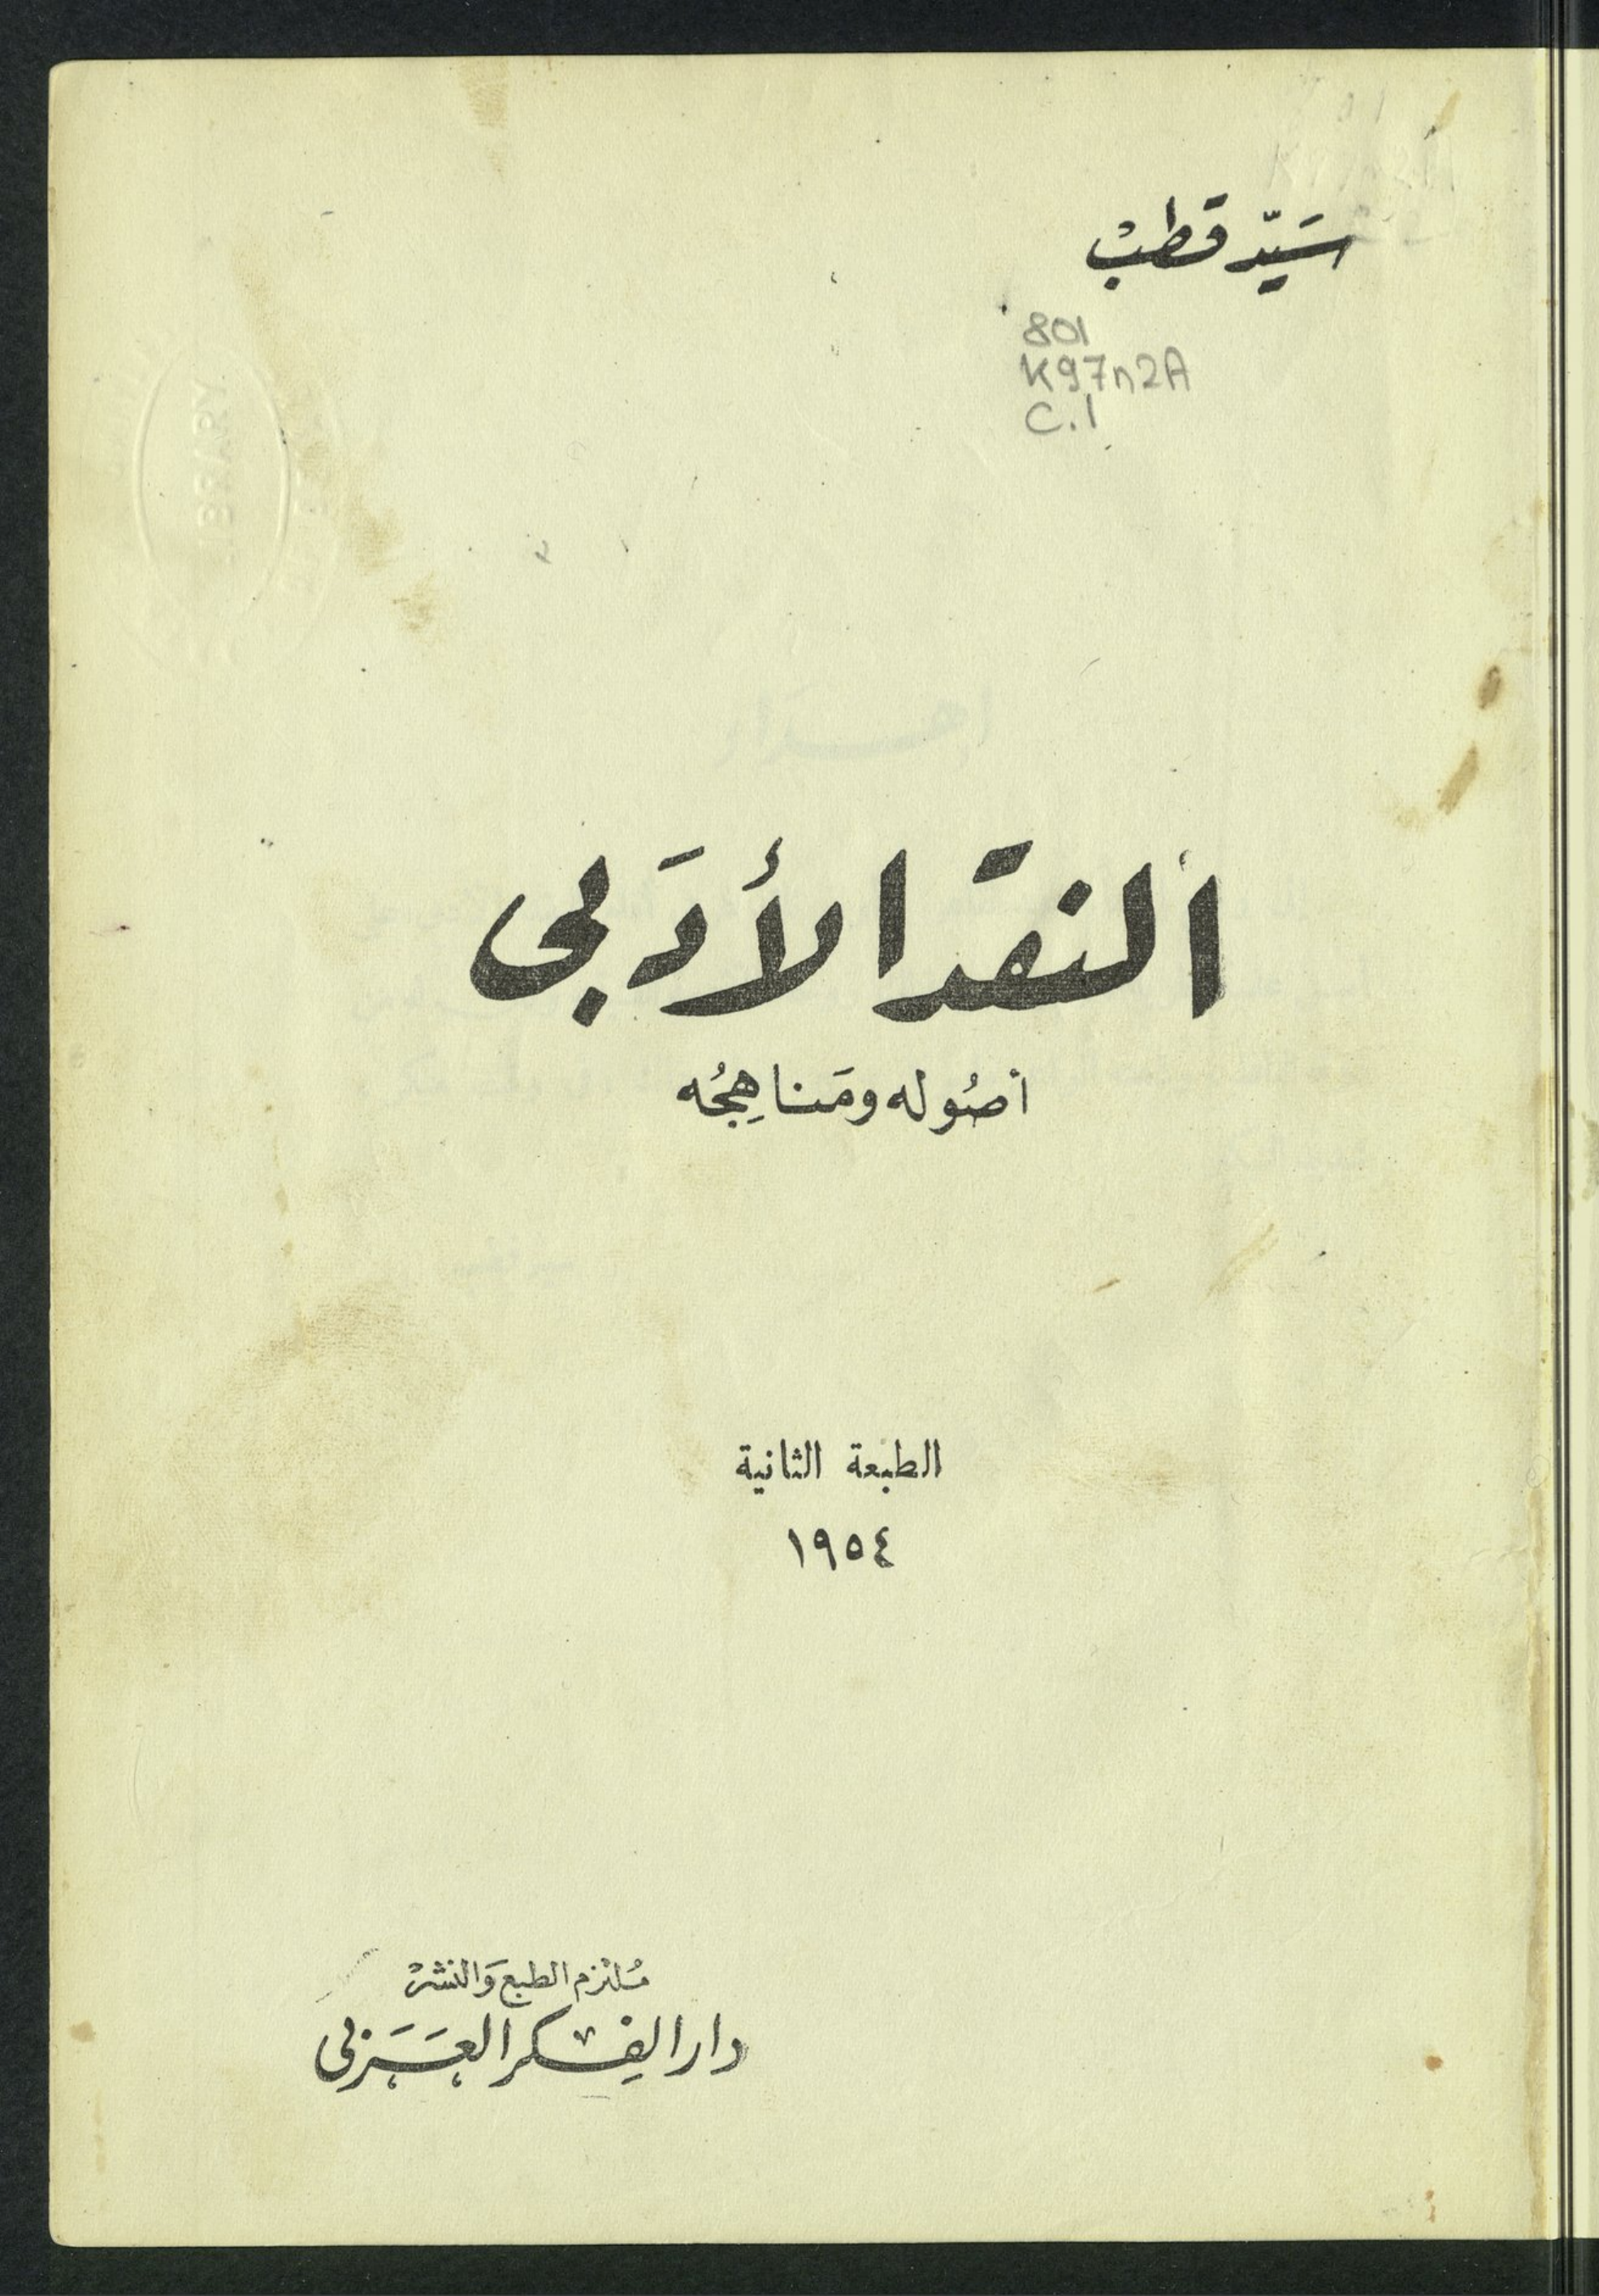 سَيّد قطبْ
801
K97n2A
C.1
النقد الأدَبى
أصُوله ومَناهِجُه
الطبعة الثانية
١٩٥٤
مُلتزم الطبع وَالنشرْ
دار الفِكر العَرَبى